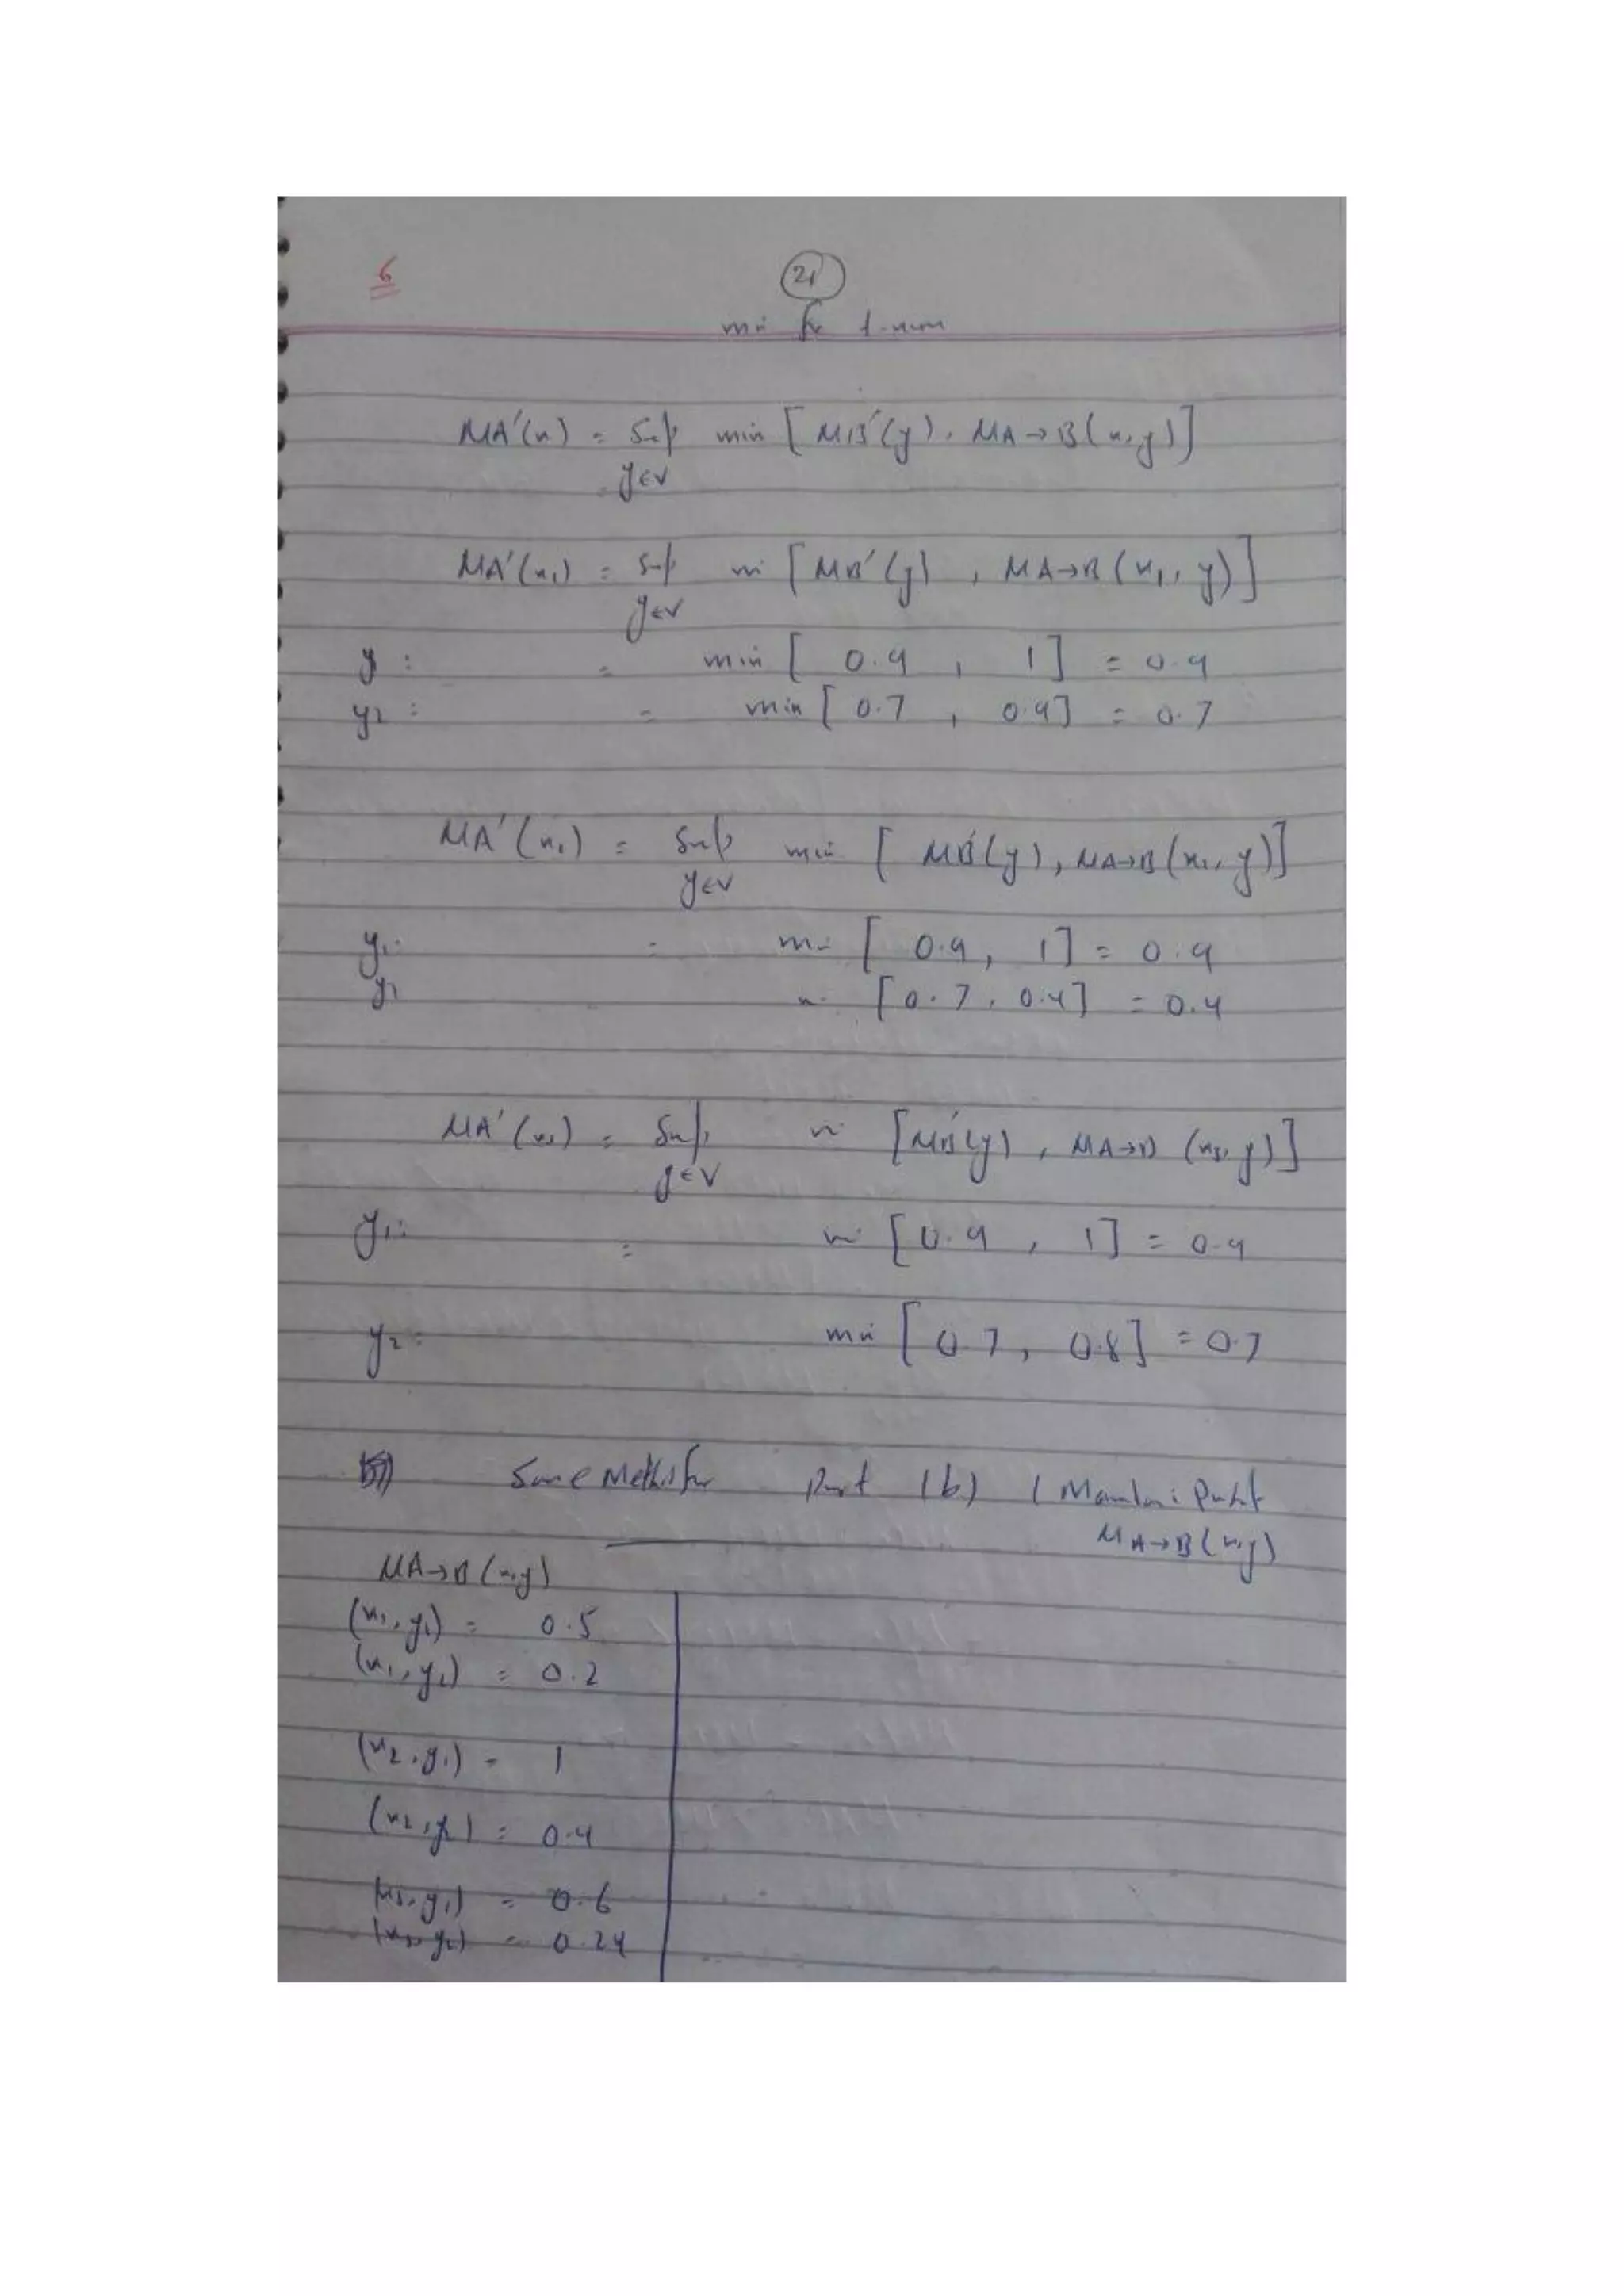 6
21
min for t-norm
MA'(x) = Sup min [MB'(y), MA→B(x,y)]
y∈V
MA'(x1) = Sup min [MB'(y), MA→B(x1, y)]
y∈V
y: = min [0.9, 1] = 0.9
y2: = min [0.7, 0.9] = 0.7
MA'(x2) = Sup min [MB'(y), MA→B(x2, y)]
y∈V
y1: = min [0.9, 1] = 0.9
y2 min [0.7, 0.4] = 0.4
MA'(x3) = Sup min [MB'(y), MA→B (x3, y)]
y∈V
y1: = min [0.9, 1] = 0.9
y2: min [0.7, 0.8] = 0.7
Same Method for Part (b) (Mamdani Product
MA→B(x,y)
MA→B(x,y)
(x1, y1) = 0.5
(x1, y2) = 0.2
(x2, y1) = 1
(x2, y2) = 0.4
(x3, y1) = 0.6
(x3, y2) = 0.24